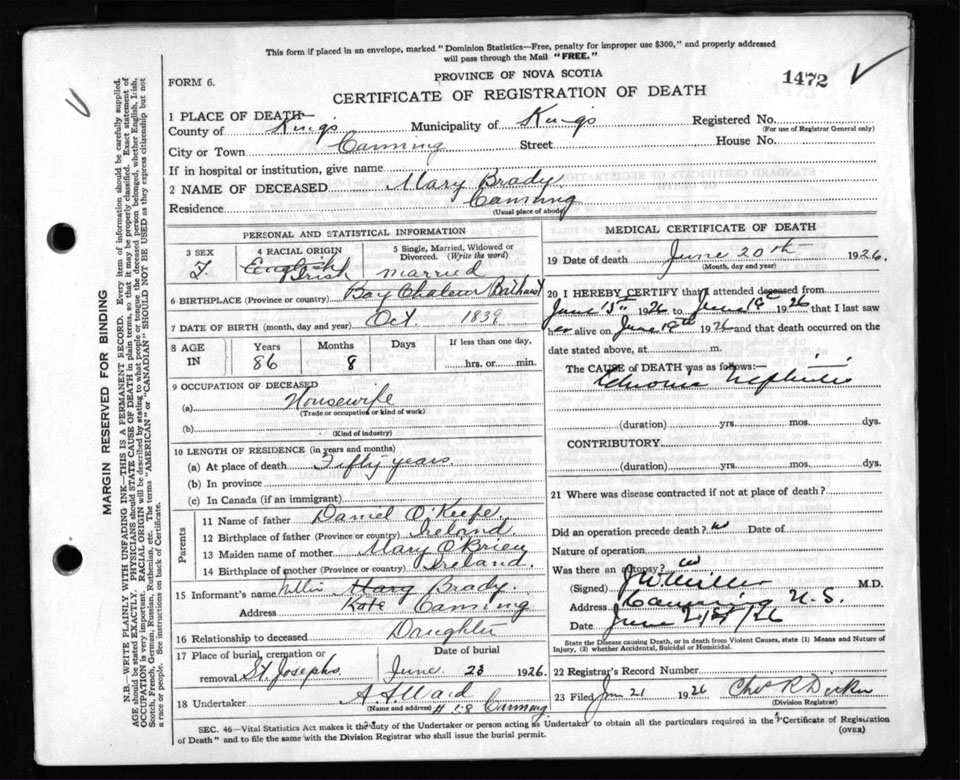 This form if placed in an envelope, marked "Dominion Statistics—Free, penalty for improper use $300," and properly addressed
will pass through the Mail "FREE."
FORM 6.
PROVINCE OF NOVA SCOTIA
1472
CERTIFICATE OF REGISTRATION OF DEATH
1 PLACE OF DEATH—
County of Kings Municipality of Kings Registered No.
(For use of Registrar General only)
City or Town Canning Street House No.
If in hospital or institution, give name
2 NAME OF DECEASED Mary Brady
Residence Canning
(Usual place of abode)
PERSONAL AND STATISTICAL INFORMATION
3 SEX 4 RACIAL ORIGIN 5 Single, Married, Widowed or Divorced. (Write the word)
F. English Irish married
6 BIRTHPLACE (Province or country) Bay Chaleur Bathurst
7 DATE OF BIRTH (month, day and year) Oct. 1839
8 AGE IN Years Months Days If less than one day,
86 8 hrs. or min.
9 OCCUPATION OF DECEASED
(a) Housewife
(Trade or occupation or kind of work)
(b)
(Kind of industry)
10 LENGTH OF RESIDENCE (in years and months)
(a) At place of death Fifty years.
(b) In province
(c) In Canada (if an immigrant)
Parents
11 Name of father Daniel O'Keefe
12 Birthplace of father (Province or country) Ireland.
13 Maiden name of mother Mary O'Brien
14 Birthplace of mother (Province or country) Ireland.
15 Informant's name Nellie Mary Brady.
Kate
Address Canning
16 Relationship to deceased Daughter
17 Place of burial, cremation or removal Date of burial
St. Josephs. June 23 1926.
18 Undertaker
(Name and address) Canning.
MEDICAL CERTIFICATE OF DEATH
19 Date of death June 20th 1926.
(Month, day and year)
20 I HEREBY CERTIFY that I attended deceased from
June 15th 1926 to June 19th 1926 that I last saw
her alive on June 19th 1926 and that death occurred on the
date stated above, at m.
The CAUSE OF DEATH was as follows:—
Chronic Nephritis
(duration) yrs. mos. dys.
CONTRIBUTORY
(duration) yrs. mos. dys.
21 Where was disease contracted if not at place of death?
Did an operation precede death? no Date of
Nature of operation
Was there an autopsy? no
(Signed) M.D.
Address Canning N.S.
Date June 21st/26
State the Disease causing Death, or in death from Violent Causes, state (1) Means and Nature of
Injury, (2) whether Accidental, Suicidal or Homicidal.
22 Registrar's Record Number
23 Filed Jun 21 1926
(Division Registrar)
SEC. 46—Vital Statistics Act makes it the duty of the Undertaker or person acting as Undertaker to obtain all the particulars required in the Certificate of Registration
of Death" and to file the same with the Division Registrar who shall issue the burial permit.
(OVER)
MARGIN RESERVED FOR BINDING
N.B.—WRITE PLAINLY WITH UNFADING INK—THIS IS A PERMANENT RECORD. Every item of information should be carefully supplied.
AGE should be stated EXACTLY. PHYSICIANS should STATE CAUSE OF DEATH in plain terms, so that it may be properly classified. Exact statement of
OCCUPATION is very important. RACIAL ORIGIN will be described by stating to what people or tongue the deceased person belonged, whether English, Irish,
Scotch, French, German, Russian, Ruthenian, etc. The terms "AMERICAN" or "CANADIAN" SHOULD NOT BE USED as they express citizenship but not
a race or people. See instructions on back of Certificate.